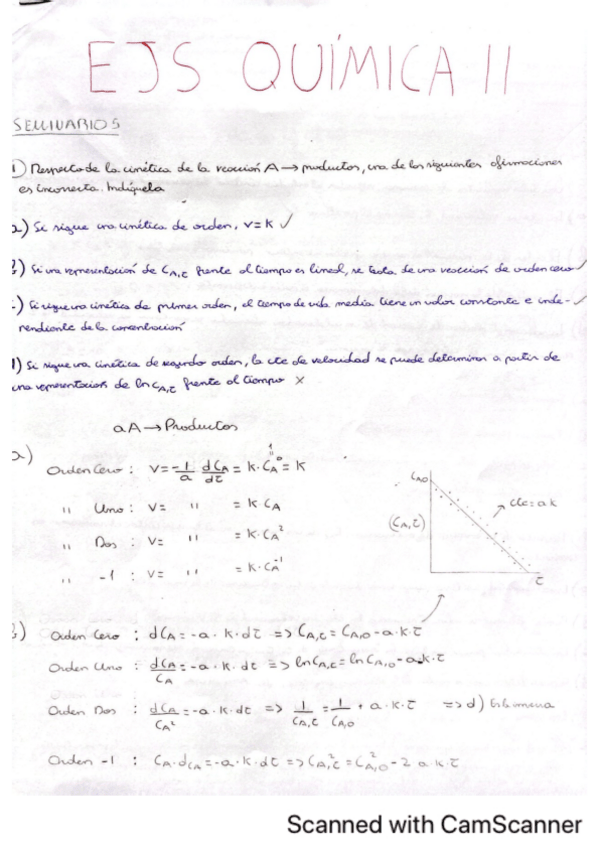 EJS QUÍMICA II
SEMINARIO 5
1) Respecto de la cinética de la reacción A → productos, una de las siguientes afirmaciones
es incorrecta. Indíquela
a) Si sigue una cinética de orden, v=k ✓
b) Si una representación de CA,τ frente al tiempo es lineal, se trata de una reacción de orden cero ✓
c) Si sigue una cinética de primer orden, el tiempo de vida media tiene un valor constante e inde- ✓
pendiente de la concentración
d) Si sigue una cinética de segundo orden, la cte de velocidad se puede determinar a partir de
una representación de ln CA,τ frente al tiempo ✗
aA → Productos
a)
1
Orden Cero : v = -1/a dCA/dτ = k·CA⁰ = k
" Uno : v = " = k·CA
" Dos : v = " = k·CA²
" -1 : v = " = k·CA⁻¹
CA,0
(CA,τ)
τ
b) Orden Cero : dCA = -a·k·dτ => CA,τ = CA,0 - a·k·τ
Orden Uno : dCA/CA = -a·k·dτ => ln CA,τ = ln CA,0 - a·k·τ
Orden Dos : dCA/CA² = -a·k·dτ => 1/CA,τ = 1/CA,0 + a·k·τ => d) Es la
Orden -1 : CA·dCA = -a·k·dτ => CA,τ² = CA,0² - 2 a·k·τ
Scanned with CamScanner